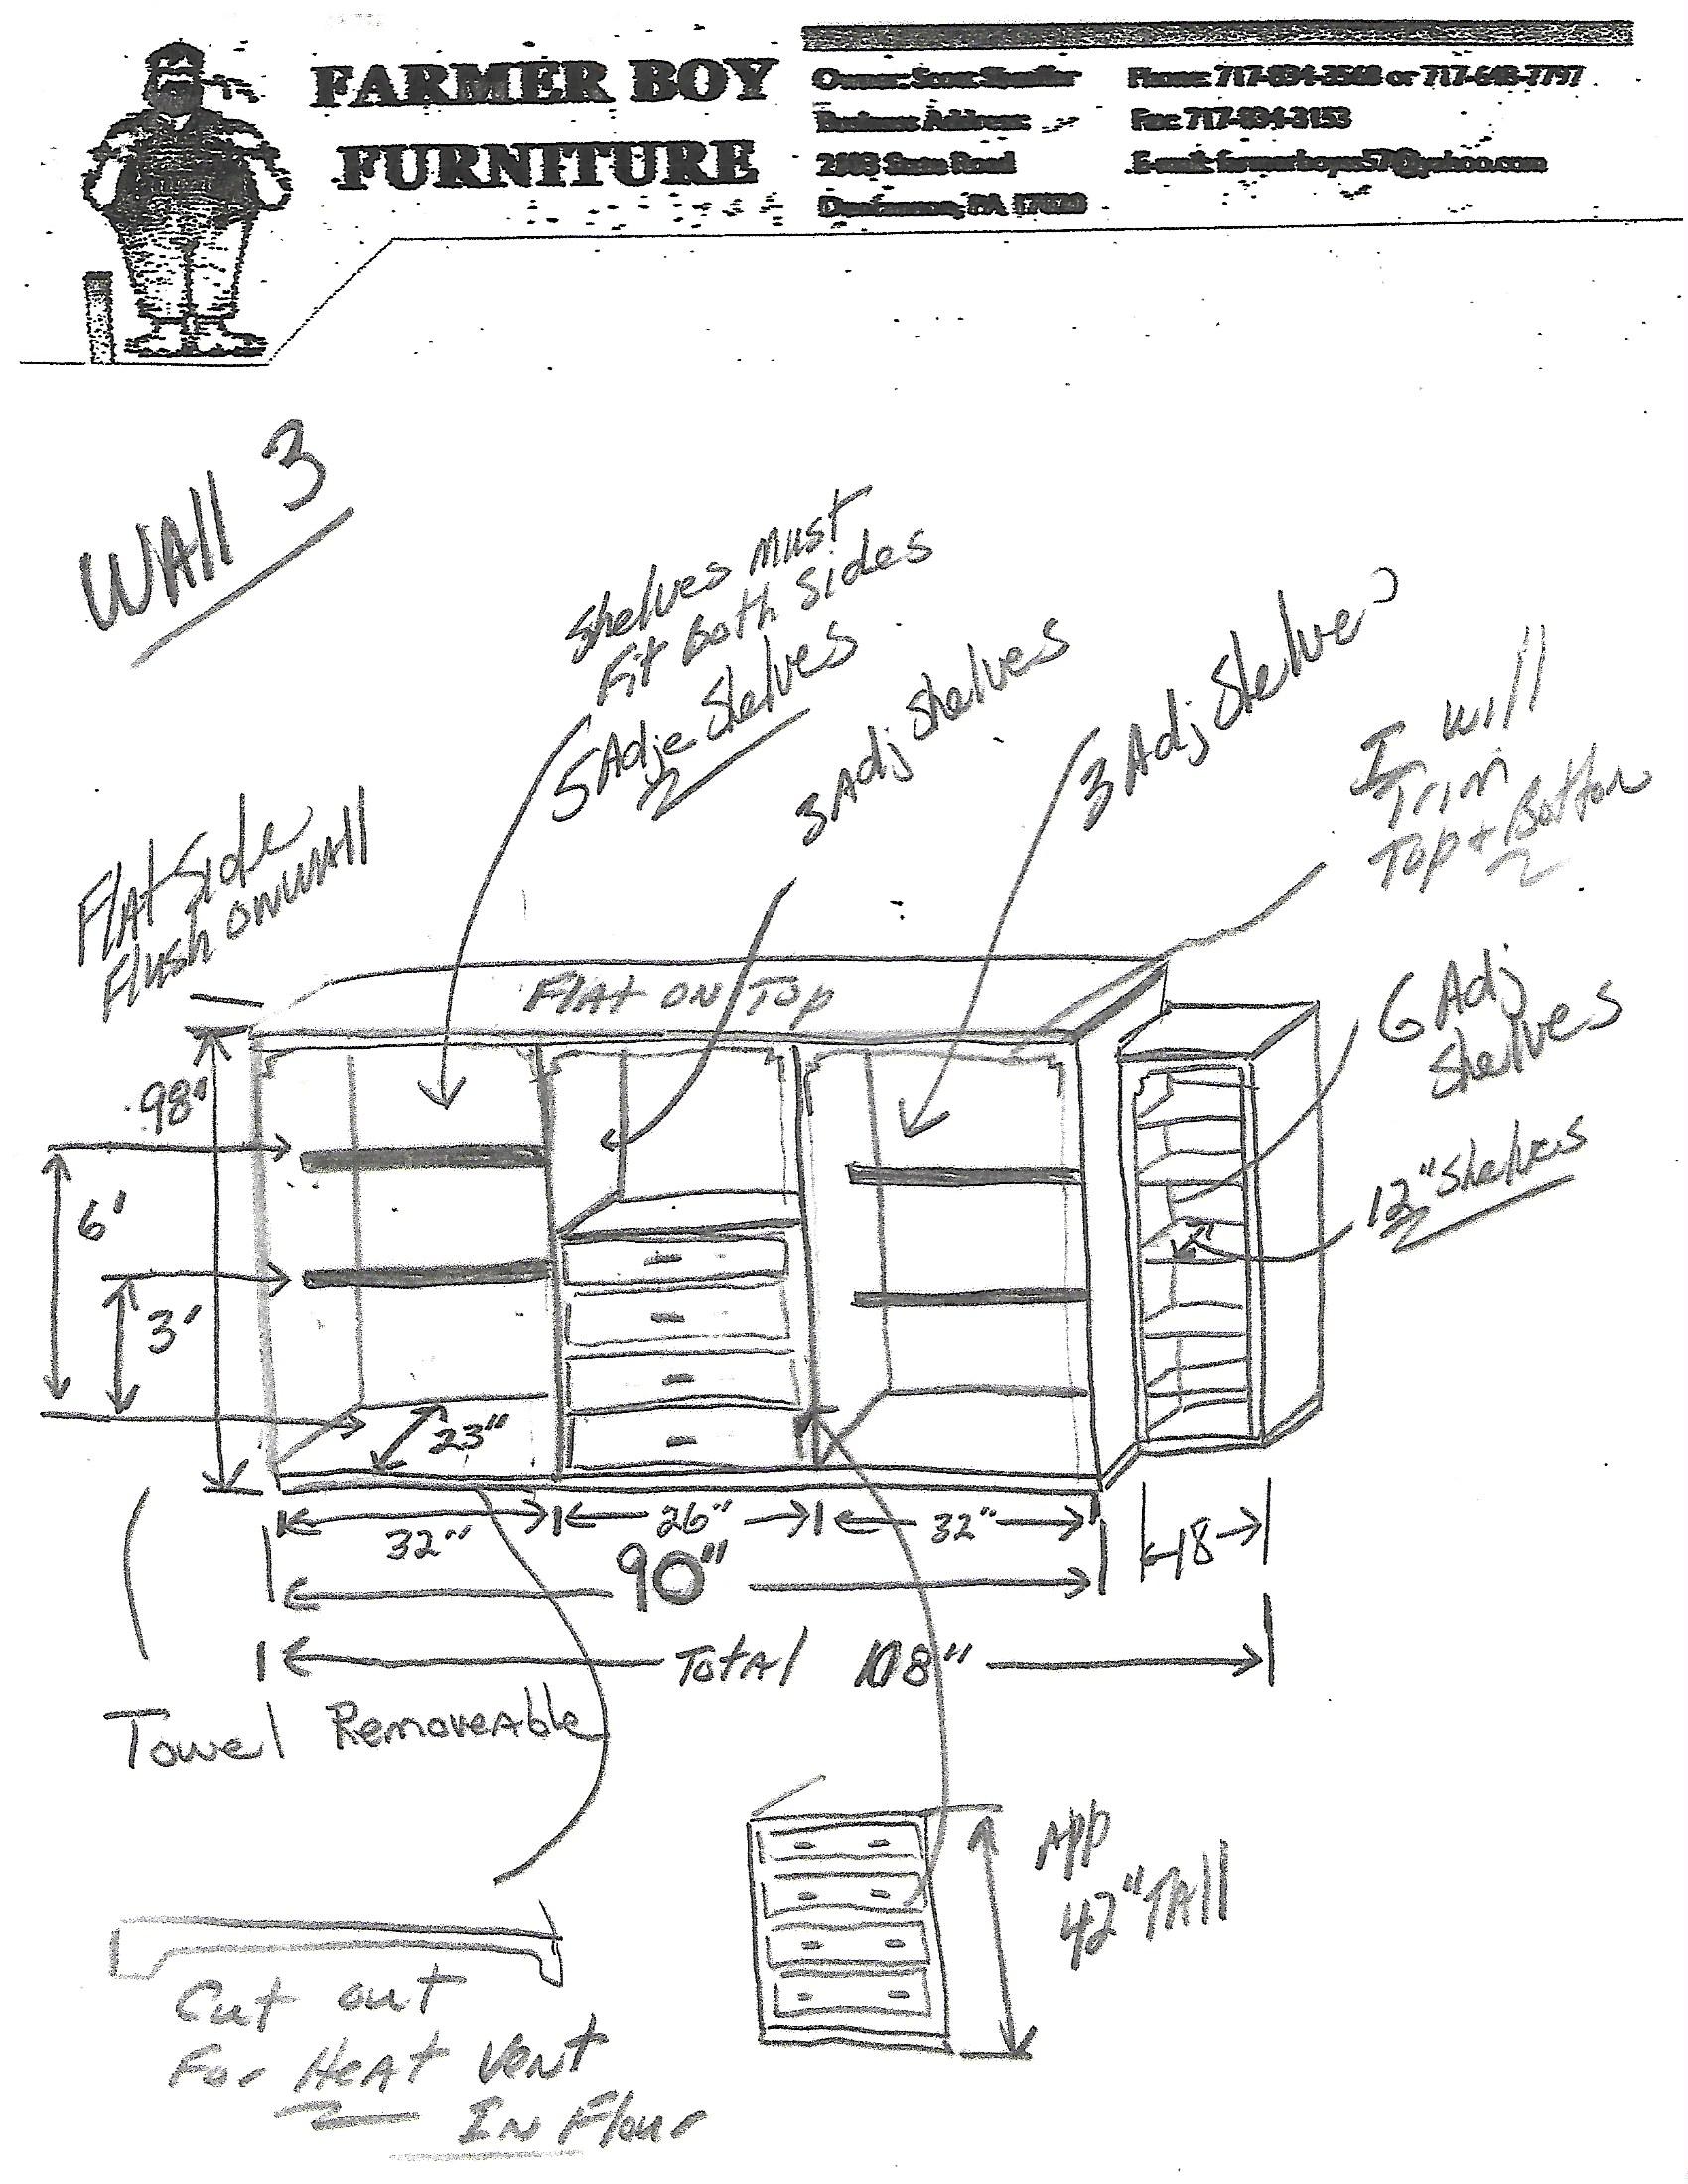 FARMER BOY
FURNITURE
Business Address:
Phone: 717-834-3568 or 717-648-7797
Fax: 717-834-3153
Road
PA
WAll 3
Shelves Must
Fit Both Sides
5 Adje Shelves
3 Adj Shelves
3 Adj Shelves
I Will
Trim
Top + Bottom
Flat Side
Flush ON WAll
Flat ON Top
6 Adj
Shelves
12" Shelves
98"
6'
3'
23"
32"
26"
32"
18
90"
Total 108"
Towel Removeable
App
42" TAll
Cut out
For HEAT Vent
IN Flour